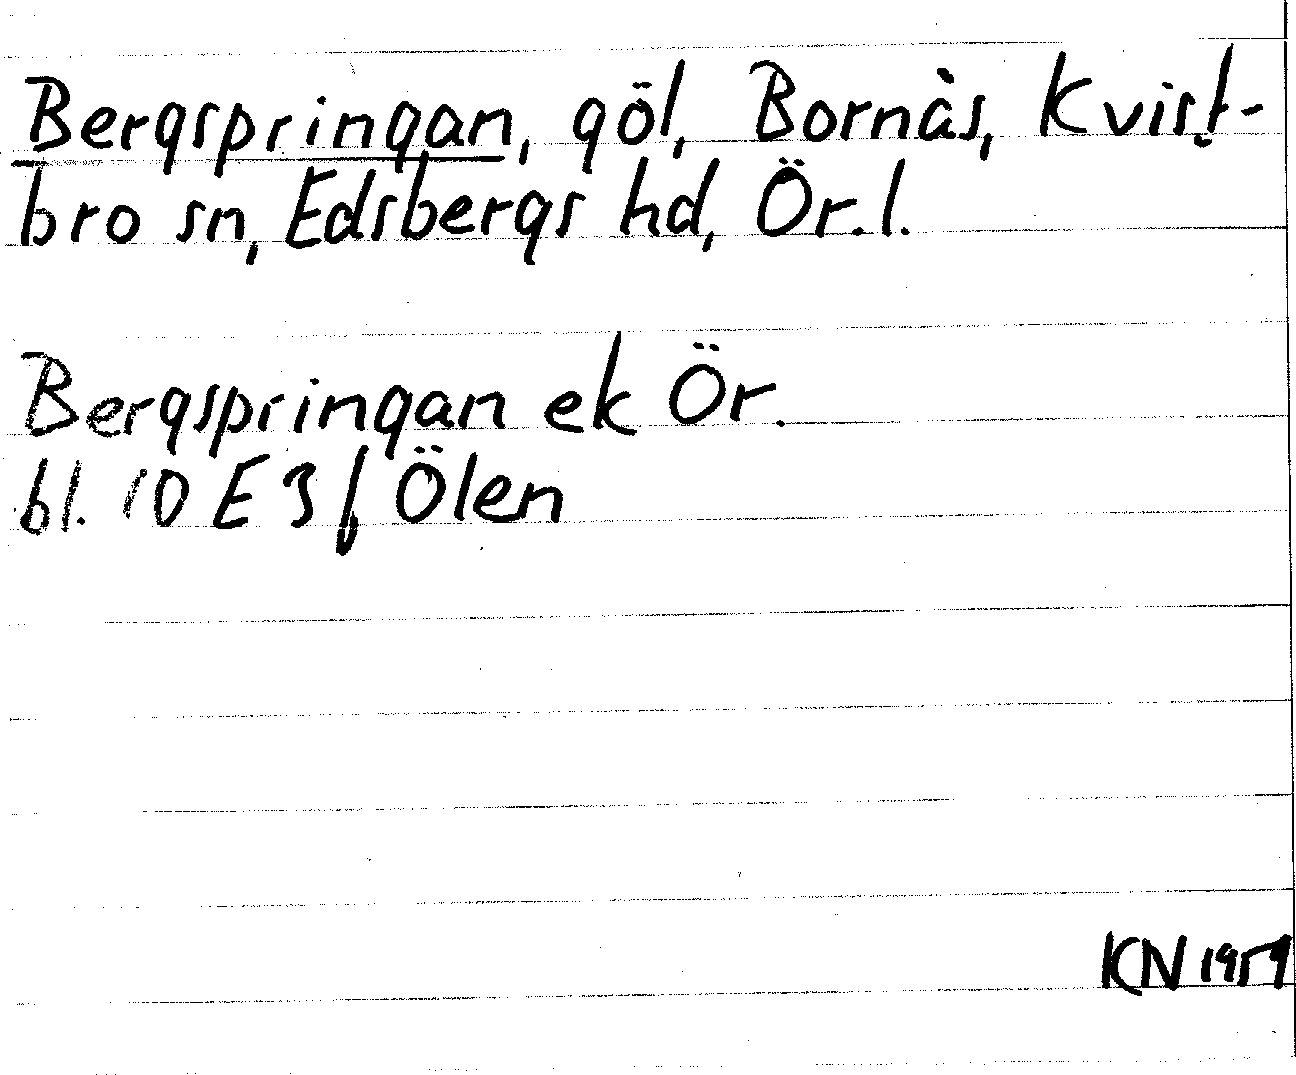 Bergspringan, göl, Bornås, Kvist-
bro sn, Edsbergs hd, Ör. l.
Bergspringan ek Ör.
bl. 10 E 3 f Ölen
KN 1959